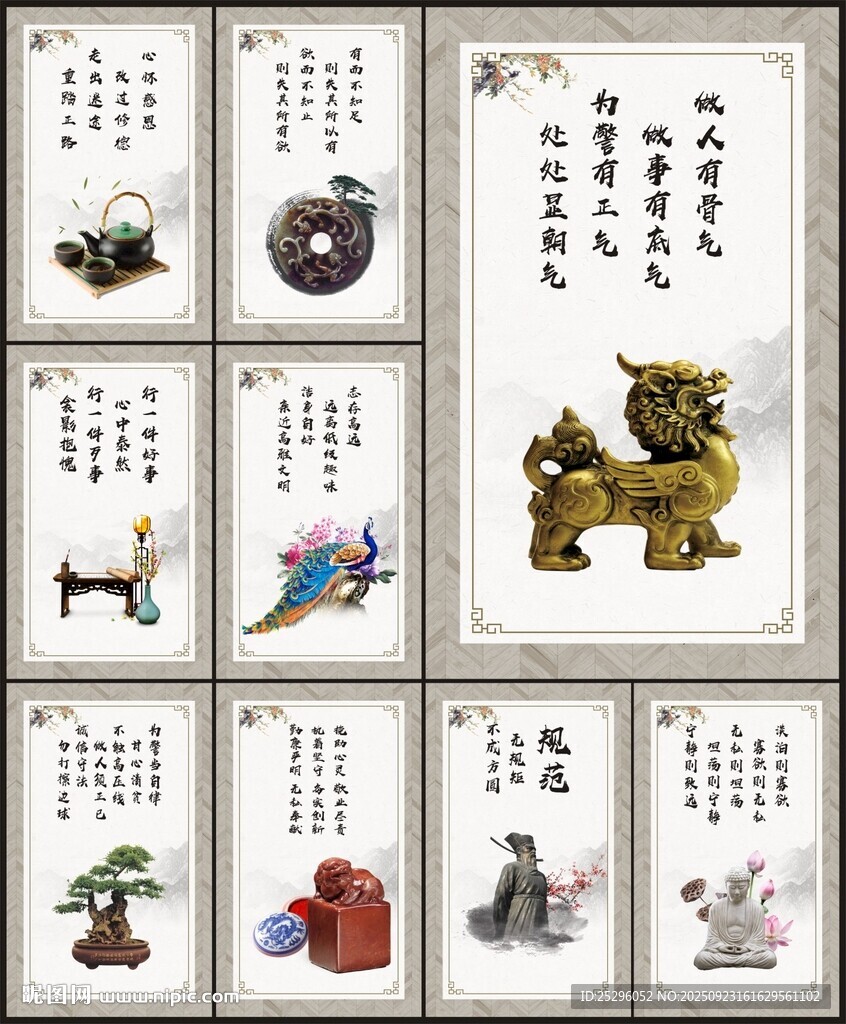 心怀感恩
改过修德
走出迷途
重踏正路
有而不知足
则失其所以有
欲而不知止
则失其所有欲
做人有骨气
做事有底气
为警有正气
处处显朝气
行一件好事
心中泰然
行一件歹事
衾影抱愧
志存高远
远离低级趣味
洁身自好
亲近高雅文明
为警当自律
甘心清贫
不触高压线
做人须正己
诚信守法
勿打擦边球
挽助心灵 敬业尽责
执着坚守 务实创新
勤廉严明 无私奉献
规范
无规矩
不成方圆
淡泊则寡欲
寡欲则无私
无私则坦荡
坦荡则宁静
宁静则致远
昵图网 www.nipic.com
ID:25296052 NO:20250923161629561102